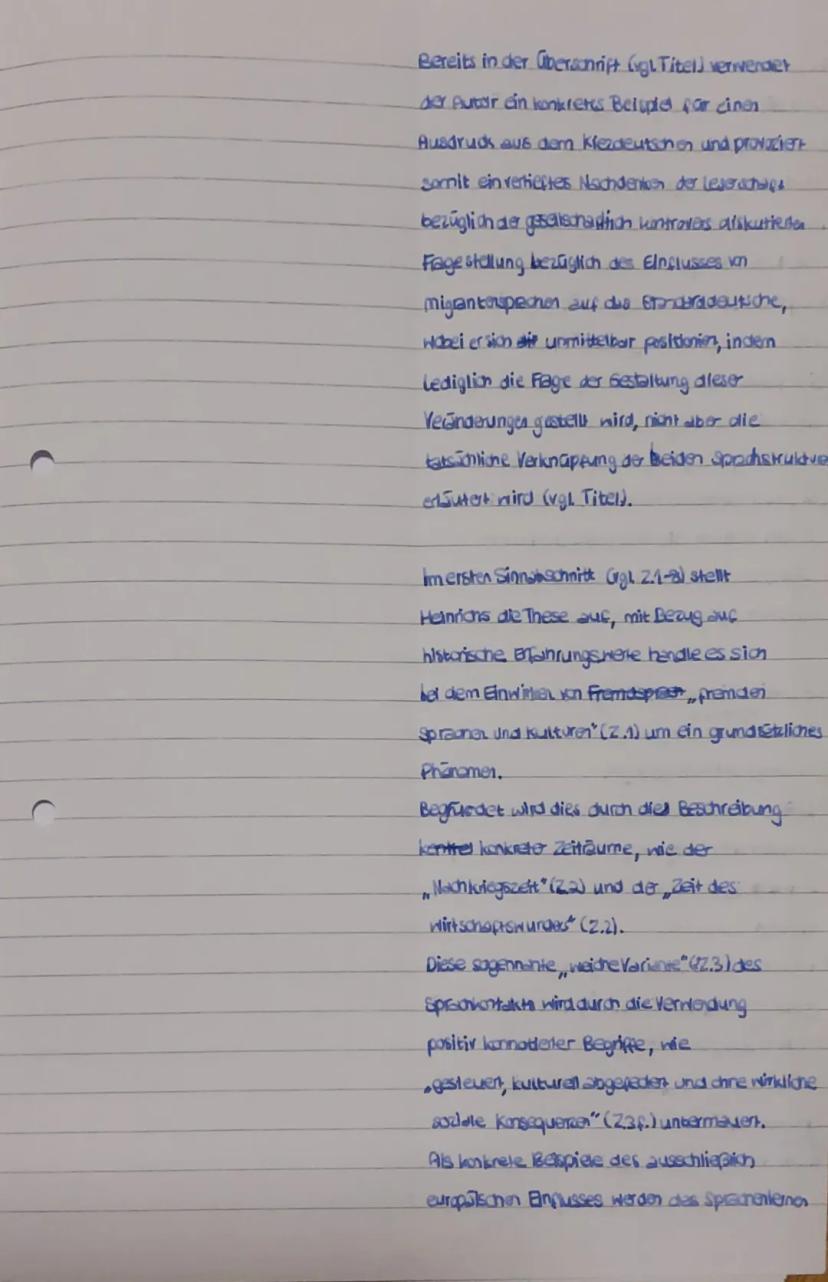 Bereits in der Überschrift (vgl. Titel) verwendet
der Autor ein konkretes Beispiel für einen
Ausdruck aus dem Kiezdeutschen und provoziert
somit ein vertieftes Nachdenken der Leserschaft
bezüglich der gesellschaftlich kontrovers diskutierten
Fragestellung bezüglich des Einflusses von
Migrantensprachen auf das Standarddeutsche,
wobei er sich unmittelbar positioniert, indem
lediglich die Frage der Gestaltung dieser
Veränderungen gestellt wird, nicht aber die
tatsächliche Verknüpfung der beiden Sprachstrukture
erläutert wird (vgl. Titel).
Im ersten Sinnabschnitt (vgl. Z.1-8) stellt
Heinrichs die These auf, mit Bezug auf
historische Erfahrungswerte handle es sich
bei dem Einwirken von „fremden
Sprachen und Kulturen" (Z.1) um ein grundsätzliches
Phänomen.
Begründet wird dies durch die Beschreibung
konkreter Zeiträume, wie der
„Nachkriegszeit" (Z.2) und der „Zeit des
Wirtschaftswunders" (Z.2).
Diese sogenannte „weiche Variante" (Z.3) des
Sprachkontakts wird durch die Verwendung
positiv konnotierter Begriffe, wie
„gesteuert, kulturell abgefedert und ohne wirkliche
soziale Konsequenzen" (Z.3f.) untermauert.
Als konkrete Beispiele des ausschließlich
europäischen Einflusses werden das Sprachenlernen